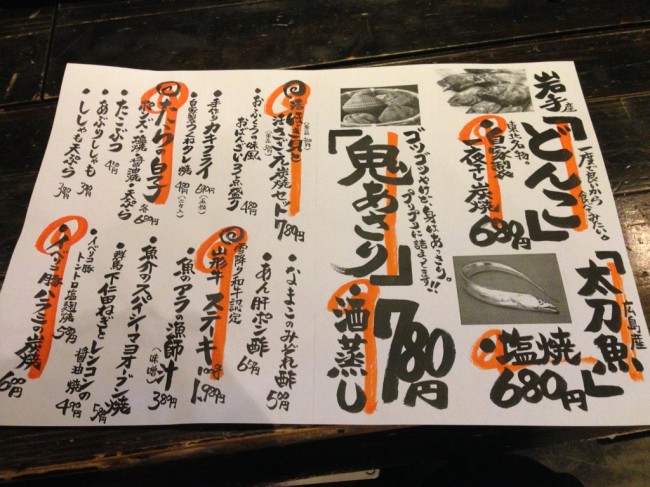 岩手産
「どんこ」
一度で良いから
食べてみたい。
東北名物。
自家製
一夜干し炭焼
680円
「太刀魚」
広島産
・塩焼
680円
ゴツゴツやけど、身はあっさり。
プリップリに詰まってます!!
「鬼あさり」
・酒蒸し
780円
炭焼セット 780円
・おふくろの味風
おばんざい 3点盛り 480円
・手作りカキフライ 680円
・自家製つくねタレ焼 480円
・たらの白子
ポン酢・塩・醤油・天ぷら 各680円
・たこぶつ 480円
・あぶりししゃも 390円
・ししゃも天ぷら 390円
・なまこのみぞれ酢 580円
・あん肝ポン酢 680円
霜降り和牛認定
・山形牛ステーキ 1,980円
・魚のアラの漁師汁 (味噌) 380円
・魚介のスパイシーマヨオーブン焼 580円
・群馬下仁田ねぎとレンコンの
醤油焼 490円
・イベリコ豚
トントロ塩麹焼 590円
・イベリコ豚ハラミの炭焼 600円